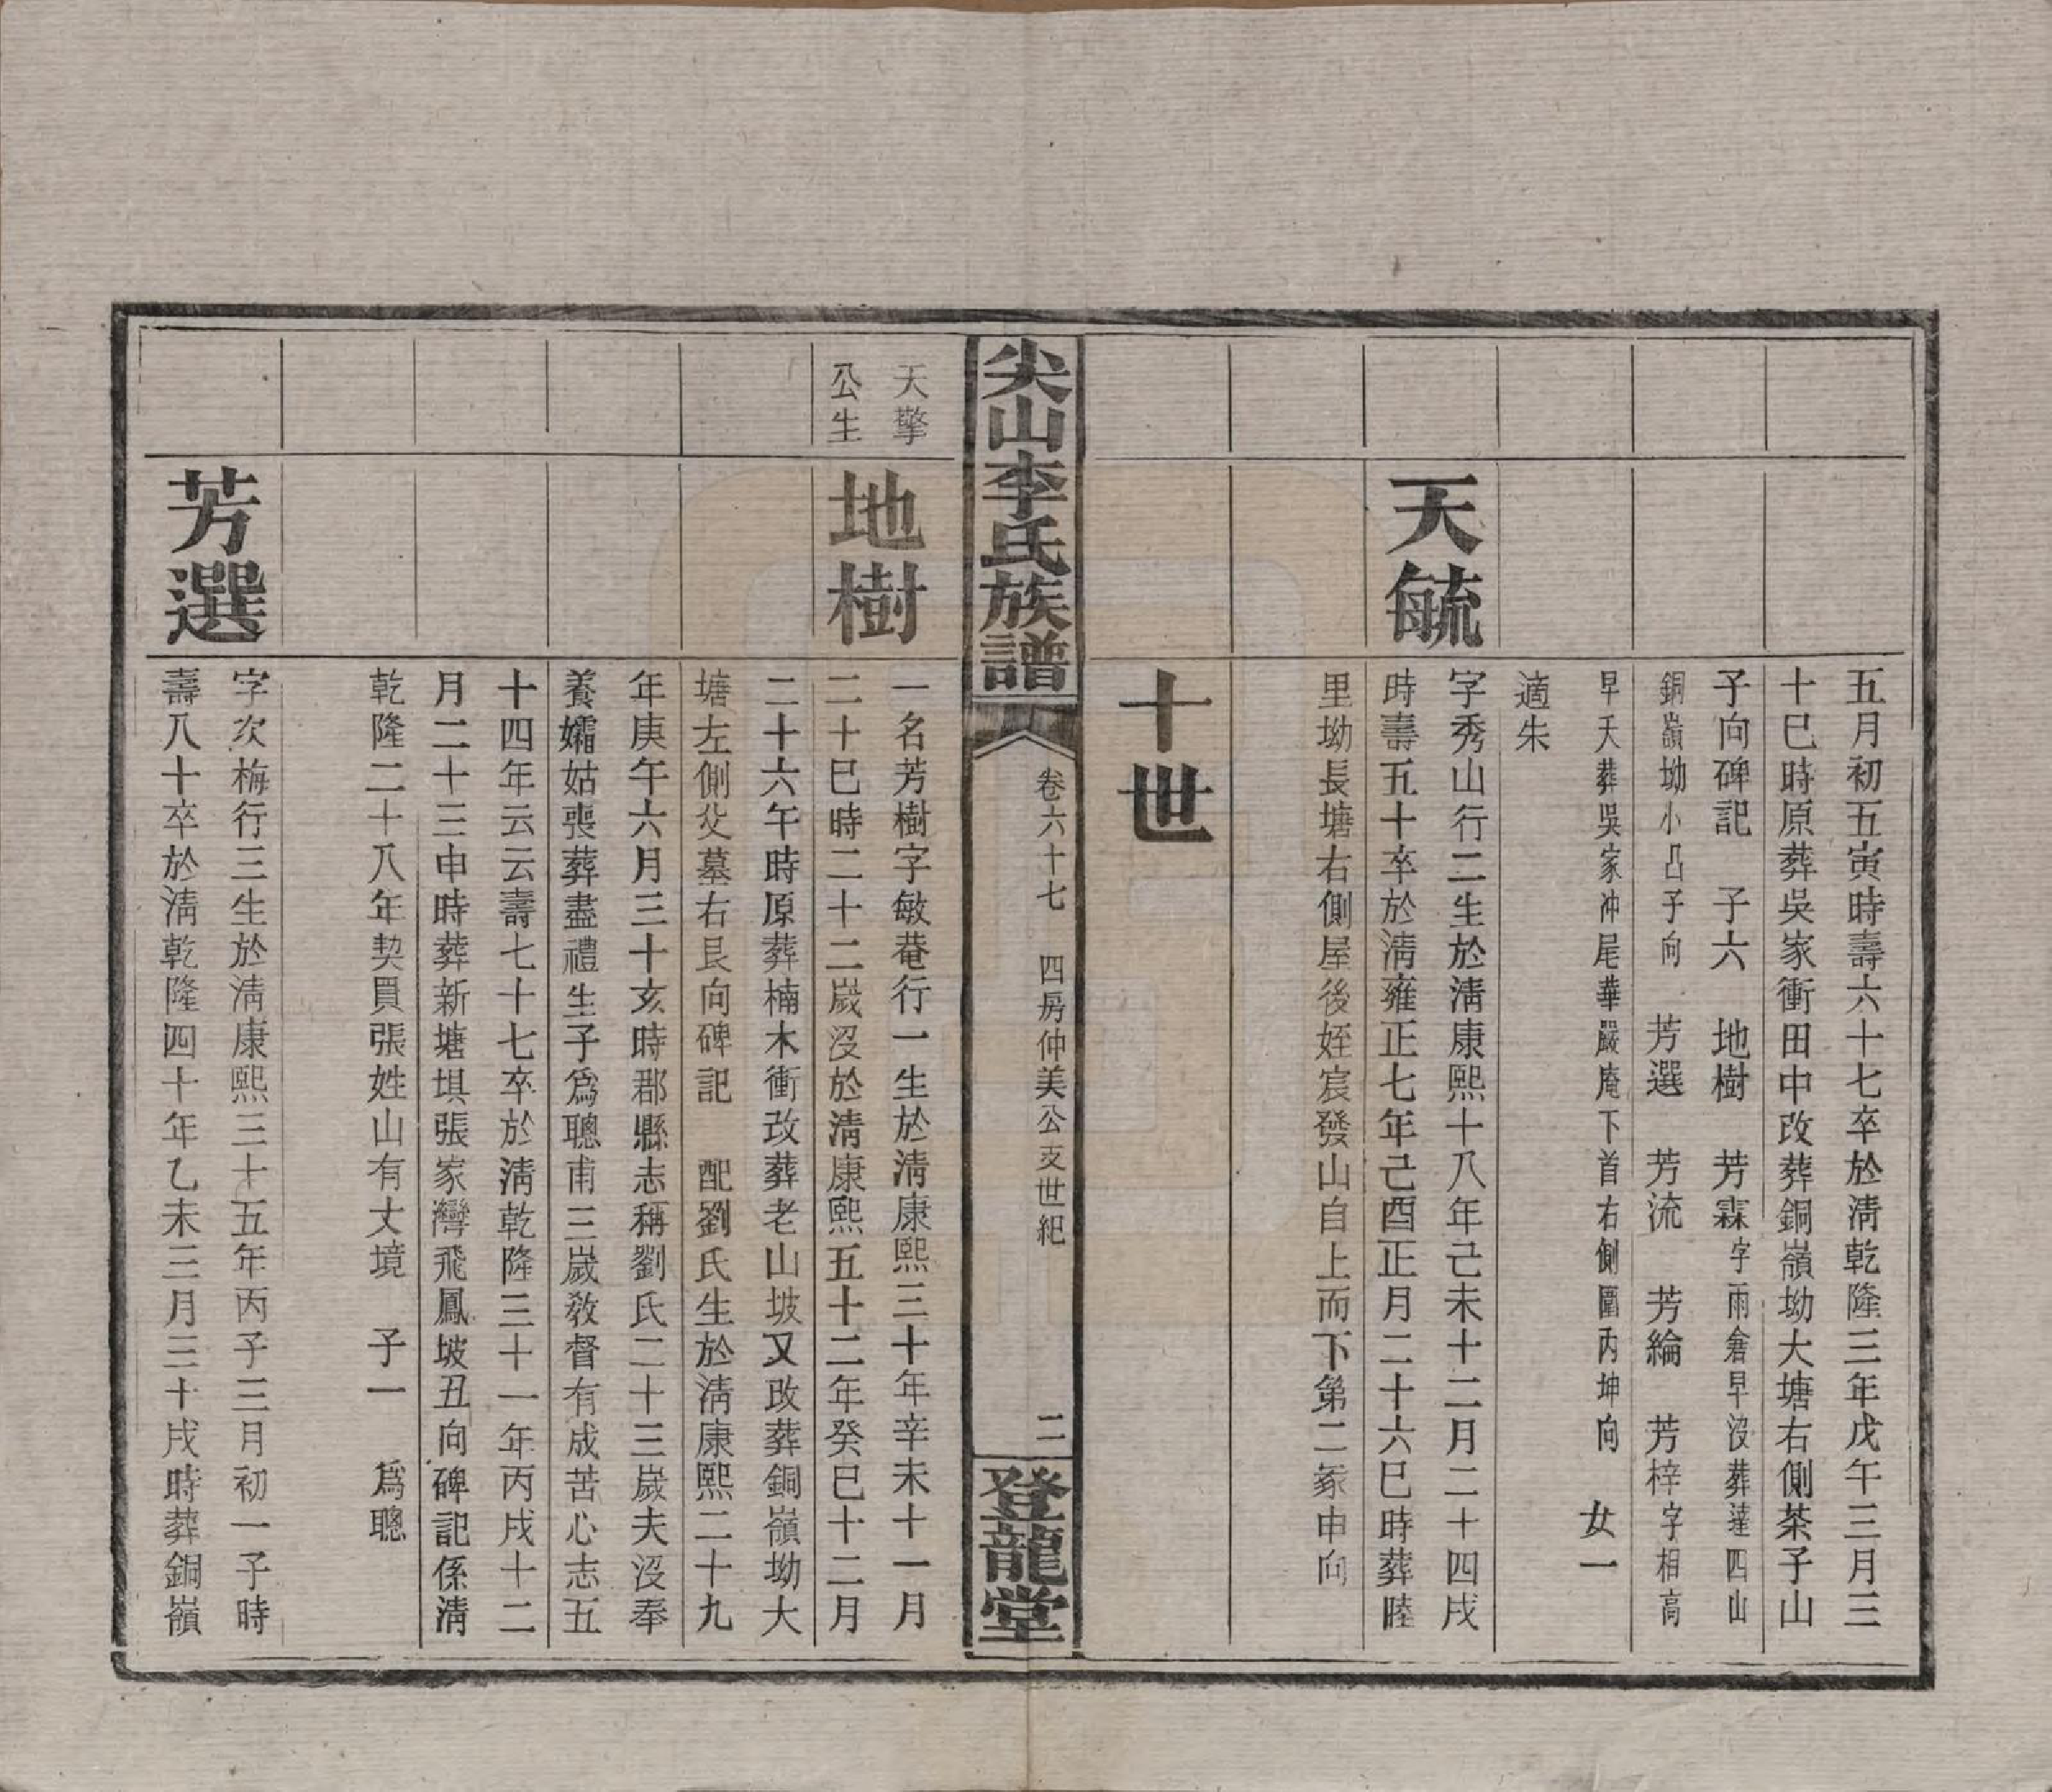 五月初五寅時壽六十七卒於淸乾隆三年戊午三月三
十巳時原葬吳家衝田中改葬銅嶺坳大塘右側茶子山
子向碑記　子六　地樹　芳霖字雨倉早沒葬蓮四山
銅嶺坳小凸子向　芳選　芳流　芳綸　芳梓字相高
早夭葬吳家冲尾華嚴庵下首右側圍內坤向　女一
適朱
天毓
字秀山行二生於淸康熙十八年己未十二月二十四戌
時壽五十卒於淸雍正七年己酉正月二十六巳時葬睦
里坳長塘右側屋後姪宸發山自上而下第二冢申向
十世
尖山李氏族譜
卷六十七　四房仲美公支世紀
二
登龍堂
天擎
公生
地樹
一名芳樹字敏菴行一生於淸康熙三十年辛未十一月
二十巳時二十二歲沒於淸康熙五十二年癸巳十二月
二十六午時原葬楠木衝改葬老山坡又改葬銅嶺坳大
塘左側父墓右艮向碑記　配劉氏生於淸康熙二十九
年庚午六月三十亥時郡縣志稱劉氏二十三歲夫沒奉
養孀姑喪葬盡禮生子爲聰甫三歲敎督有成苦心志五
十四年云云壽七十七卒於淸乾隆三十一年丙戌十二
月二十三申時葬新塘埧張家灣飛鳳坡丑向碑記係淸
乾隆二十八年契買張姓山有丈境　子一　爲聰
芳選
字次梅行三生於淸康熙三十五年丙子三月初一子時
壽八十卒於淸乾隆四十年乙未三月三十戌時葬銅嶺